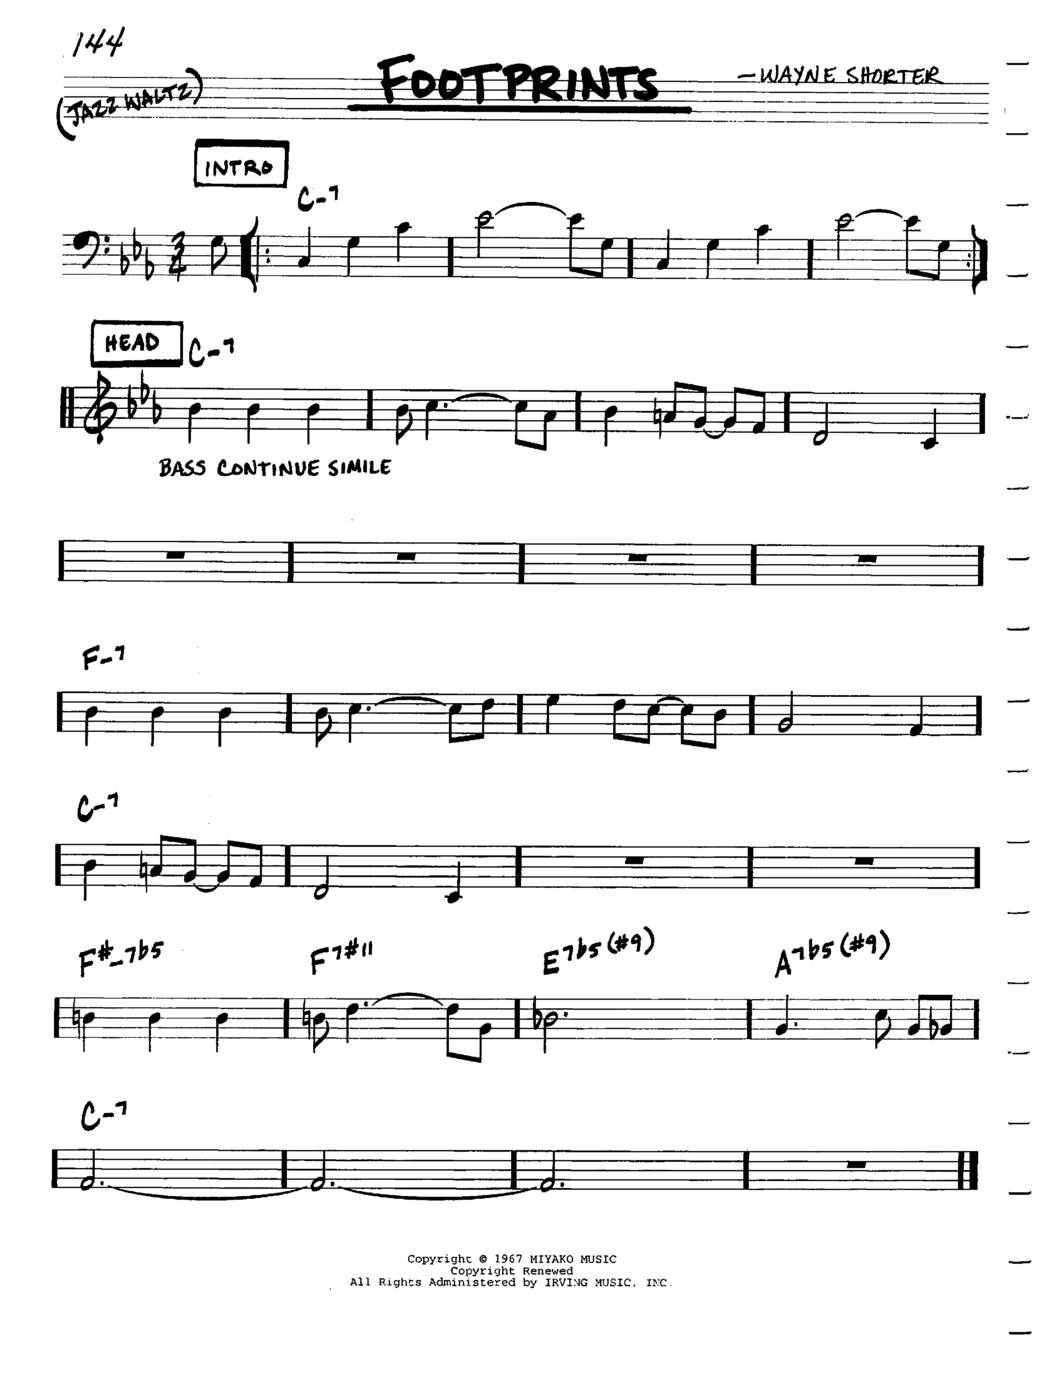 144
FOOTPRINTS
—WAYNE SHORTER
(JAZZ WALTZ)
INTRO
C-7
3
4
HEAD
C-7
BASS CONTINUE SIMILE
F-7
C-7
F#-7b5 F7#11 E7b5(#9) A7b5(#9)
C-7
Copyright © 1967 MIYAKO MUSIC
Copyright Renewed
All Rights Administered by IRVING MUSIC, INC.